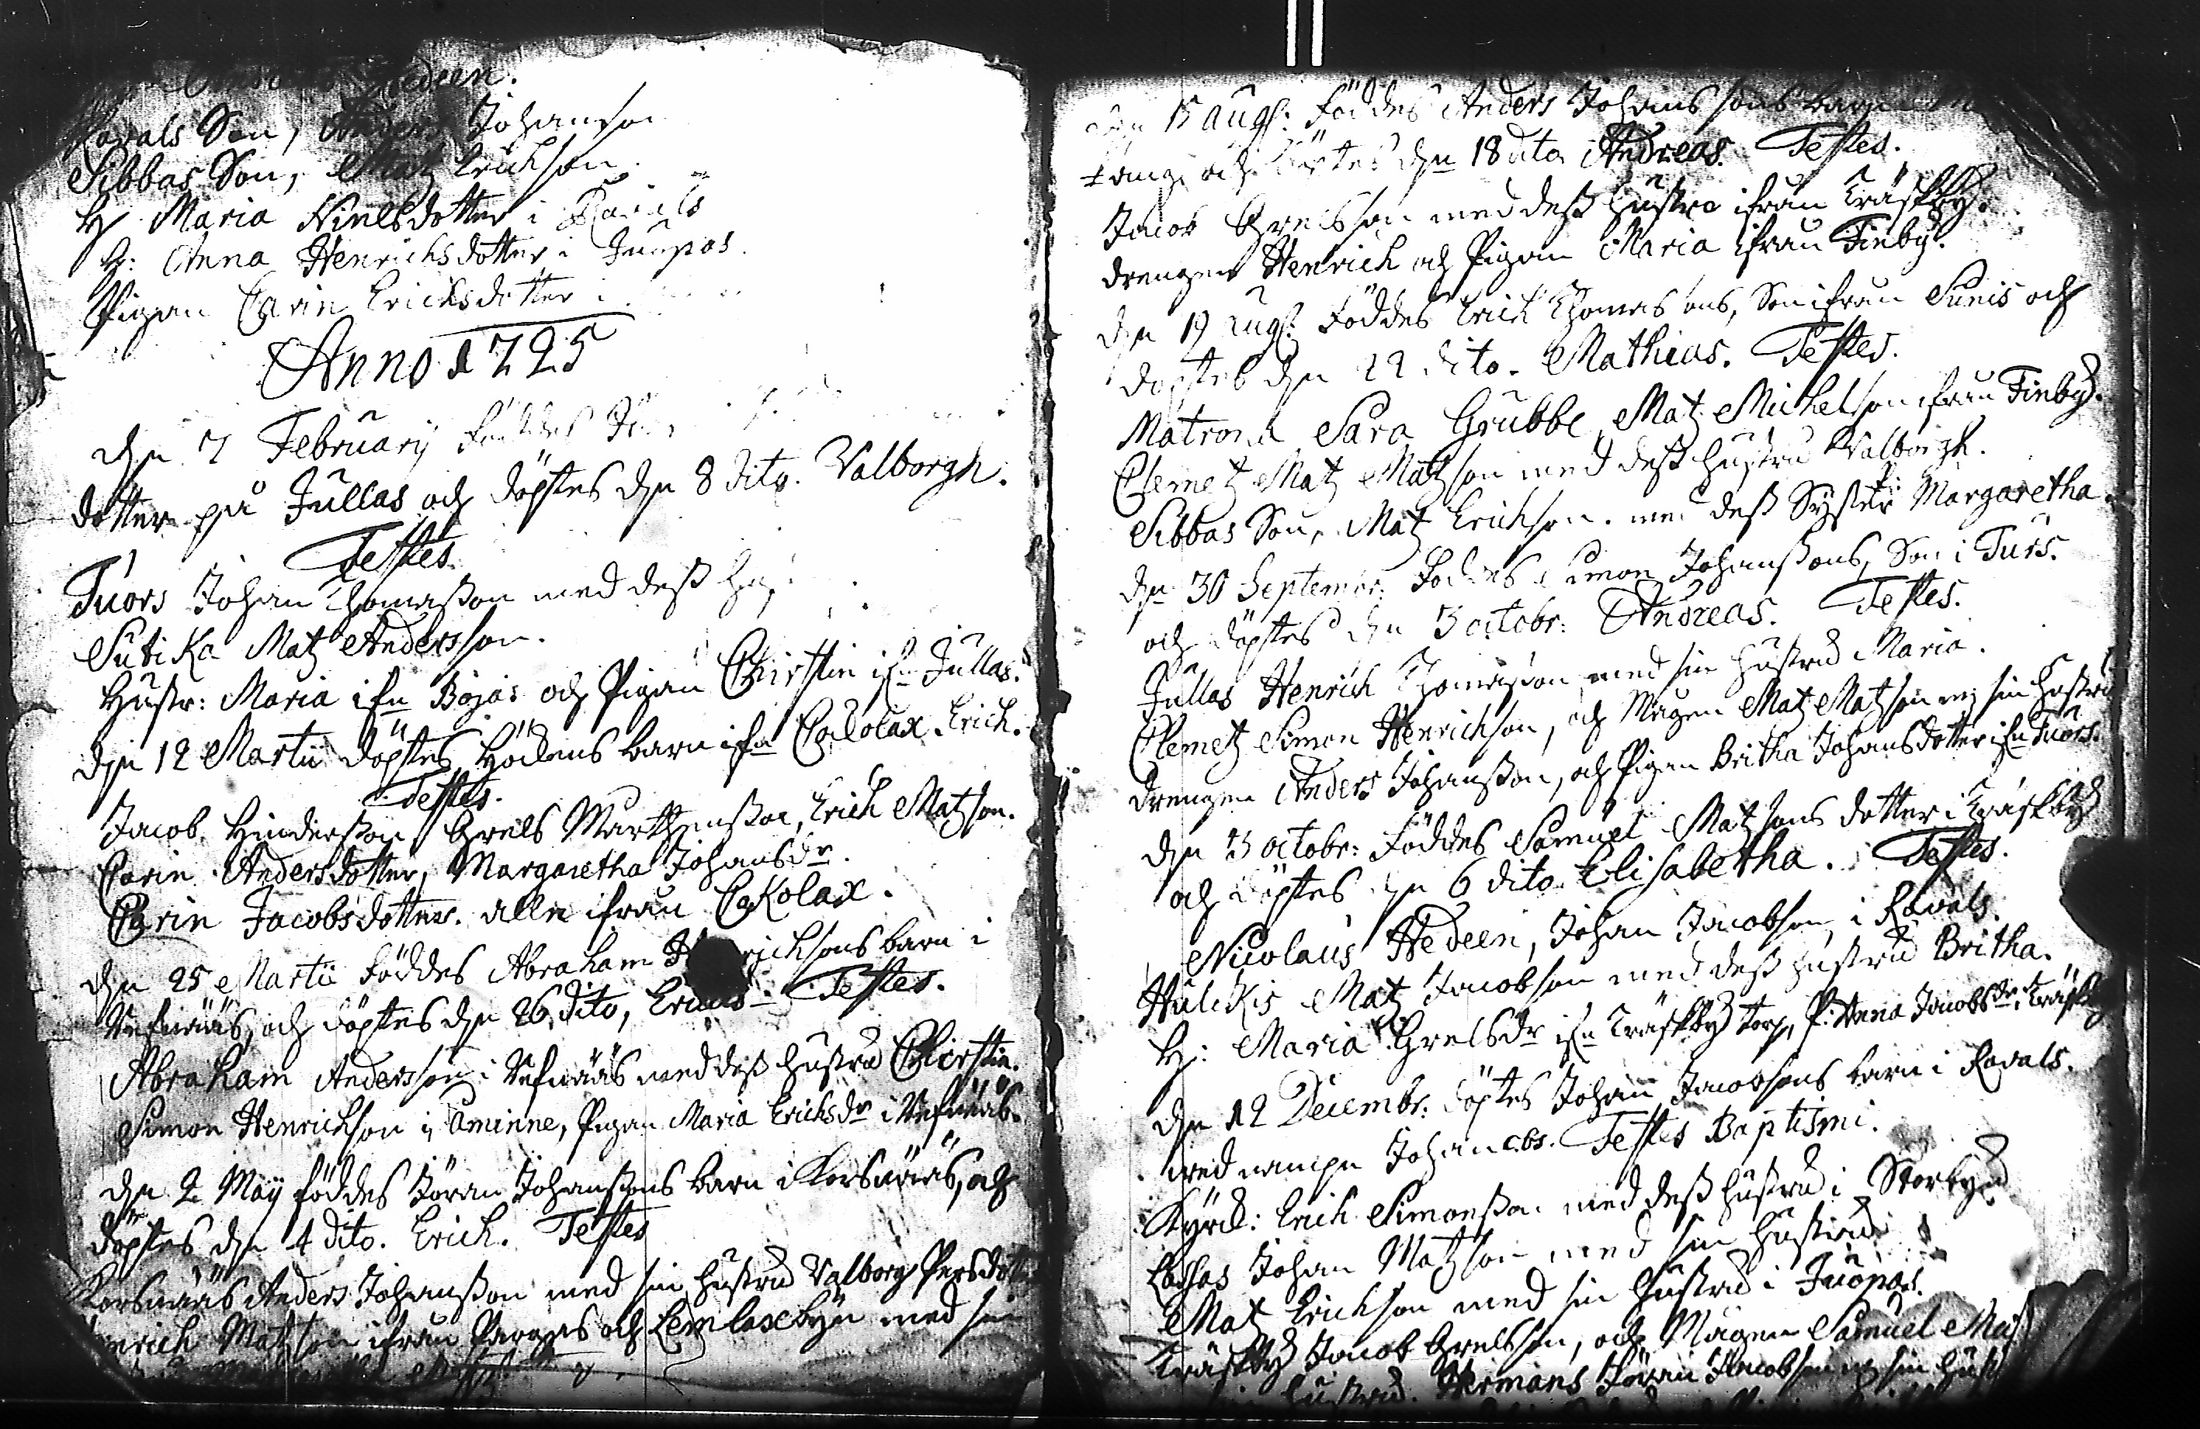 Hedeen.
Ravals Son, Anders Johanson
Sibbas Son, Matz Erichson.
H Maria Nielsdotter i Ravals
H: Anna Henrichsdotter i Juopas.
Pigan Carin Erichsdotter i
Anno 1725
den 7 February föddes
dotter på Jullas och döptes den 8 dito. Valborgh.
Testes.
Tuors Johan Thomasson med dess
Sutika Matz Andersson.
Hustr: Maria ifrn Böjas och Pigan Chirstin ifrn Jullas.
den 12 Martii döptes barn ifrn Cakolax. Erich.
Testes.
Jacob Hindersson Grels Marthensson, Erich Matzson.
Carin Andersdotter, Margaretha Johansdr.
Carin Jacobsdotter. alle ifrån Cakolax.
den 25 Martii föddes Abraham barn i
Nefnääs, och döptes den 26 dito, Testes.
Abraham Andersson i Nefnääs med dess hustru Chirstin.
Simon Henrichson i Åminne, Pigan Maria Erichsdr i Nefnääs.
den 2 Maÿ föddes Jöran Johanssons barn i Korsnääs, och
döptes den 4 dito. Erich. Testes
Korsnääs Anders Johansson med sin hustru Valborg Persdotter
Matzson ifrån Pargas och Lemlaxbyn med sin
den 15 Augs: föddes Anders Johanssons barn
och döptes den 18 dito Andreas. Testes.
Jacob Grelsson med dess hustru ifrån Träskby.
drengen Henrich och Pigan Maria ifrån Finby.
den 19 Augs: föddes Erich Thomassons, Son ifrån Sunis och
döptes den 22 dito. Mathias. Testes.
Matrona Sara Grubbe, Matz Michelson ifrån Finby.
Clemetz Matz Matzson med dess hustru Valborgh.
Sibbas Son, Matz Erichson. med dess Syster P: Margaretha.
den 30 Septembr: föddes Simon Johanssons, Son i Tuors.
och döptes den 3 octobr: Andreas. Testes.
Jullas Henrich Thomasson med sin hustru Maria.
Clemetz Simon Henrichson, och Mågen Matz Matzson m sin hustru
drengen Anders Johansson, och Pigan Britha Johansdotter ifrn Tuors.
den 3 octobr: föddes Samuel Matzsons dotter i Träskby
och döptes den 6 dito Elisabetha. Testes.
Nicolaus Hedeen, Johan Jacobson i Ravals.
Hulckis Matz Jacobson med dess hustru Britha.
H: Maria Grelsdr ifrn Träskby torp, P: Anna Jacobsdr i Träskby
den 12 Decembr: döptes Johan Jacobsons barn i Ravals.
med nampn Johannes. Testes Baptismi.
Kyrck: Erich Simonsson med dess hustru i Storby
Lassas Johan Matzson med sin hustru
Matz Erichson med sin hustru i Juopas.
Träskby Jacob Grelsson, och Mågen Samuel
hustru. Hermans Jöran Jacobson m sin